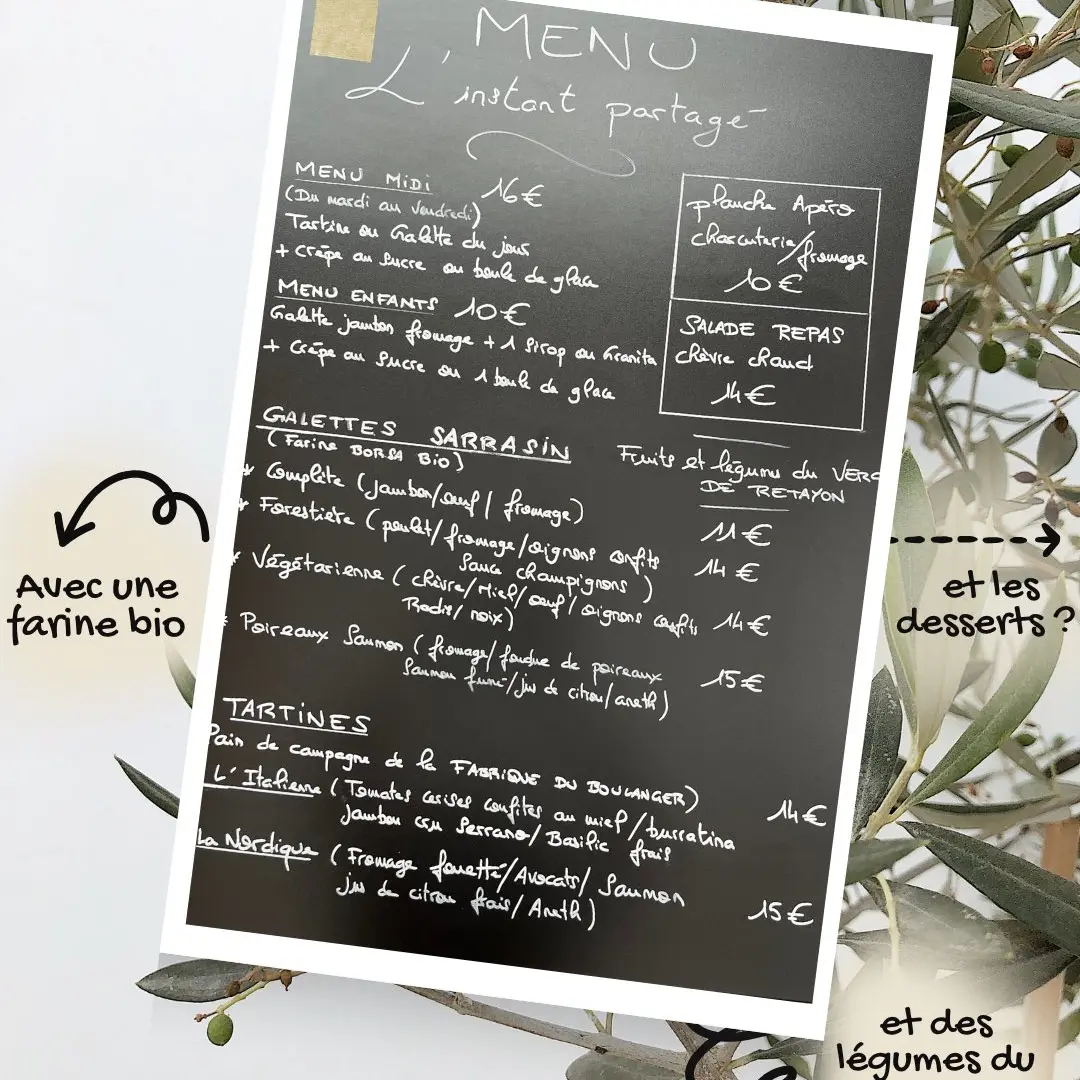 MENU
L'instant partagé
MENU MIDI 16€
(Du mardi au Vendredi)
Tartine ou Galette du jour
+ crêpe au sucre ou boule de glace
MENU ENFANTS 10€
Galette jambon fromage + 1 Sirop ou Granita
+ Crêpe au Sucre ou 1 boule de glace
planche Apéro
charcuterie/fromage
10€
SALADE REPAS
chèvre chaud
14€
GALETTES SARRASIN
(Farine BORSA Bio)
Fruits et légumes du VERG
DE RETAYON
* Complète (Jambon/œuf/fromage) 11€
* Forestière (poulet/fromage/oignons confits 14€
Sauce champignons)
* Végétarienne (chèvre/Miel/œuf/oignons confits 14€
Radis/noix)
* Poireaux Saumon (fromage/fondue de poireaux 15€
Saumon fumé/jus de citron/aneth)
TARTINES
Pain de campagne de la FABRIQUE DU BOULANGER)
L'Italienne (Tomates cerises confites au miel/burratina 14€
Jambon cru Serrano/Basilic frais
La Nordique (Fromage fouetté/Avocats/Saumon 15€
jus de citron frais/Aneth)
Avec une
farine bio
et les
desserts ?
et des
légumes du